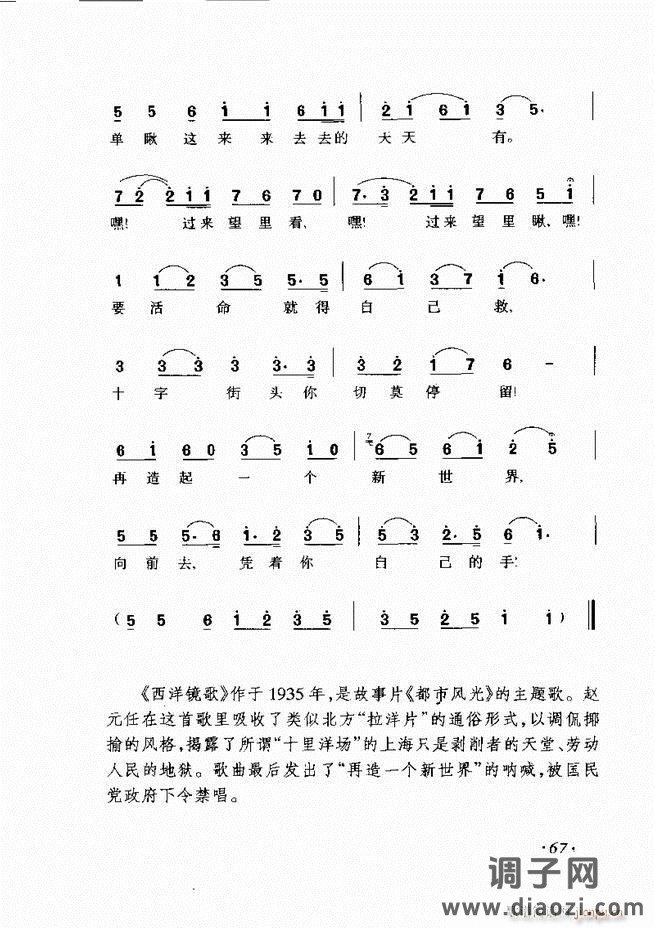 5 5 6 i i 6 i i | 2 i 6 i 3 5·
单瞅这来来去去的 大天有。
7 2 2 i i 7 6 7 0 | 7· 3 2 i i 7 6 5 i
嘿!过来望里看,嘿!过来望里瞅,嘿!
1 i 2 3 5 5· 5 | 6 i 3 7 i 6·
要活命就得自己救,
3 3 3 3 3· 3 | 3 2 i 7 6 -
十字街头你切莫停留!
6 i 6 0 3 5 i 0 | 6 5 6 i 2 5
再造起一个新世界,
5 5 5· 6 i· 2 3 5 | 5 3 2· 5 6 i·
向前去,凭着你自己的手!
(5 5 6 i 2 3 5 | 3 5 2 5 i i)
《西洋镜歌》作于1935年,是故事片《都市风光》的主题歌。赵
元任在这首歌里吸收了类似北方“拉洋片”的通俗形式,以调侃揶
揄的风格,揭露了所谓“十里洋场”的上海只是剥削者的天堂、劳动
人民的地狱。歌曲最后发出了“再造一个新世界”的呐喊,被国民
党政府下令禁唱。
·67·
调子网
www.diaozi.com